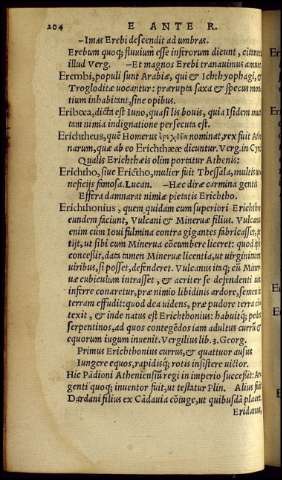 204 E ANTE R.
–Imas Erebi descendit ad umbras.
Erebum quoq; fluuium esse inferorum dicunt,
illud Verg. –Et magnos Erebi tranauimus
Erembi, populi sunt Arabiæ, qui & Ichthyophagi, &
Trogloditæ uocantur: prærupta saxa & specus
tium inhabitant, sine opibus.
Eribœa, dicta est Iuno, quasi lis bouis, quia Isidem
tam nimia indignatione persecuta est.
Erichtheus, quē Homerus nominat, rex fuit
narum, quæ ab eo Erichtheæ dicuntur. Verg. in
Qualis Erichthæis olim portatur Athenis:
Erichtho, siue Erictho, mulier fuit Thessala,
neficijs famosa. Lucan. –Hæc diræ carmina
Effera damnarat nimiæ pietatis Erichtho.
Erichthonius, quem quidam cum superiori
eundem faciunt, Vulcani & Mineruæ filius.
enim cum Ioui fulmina contra gigantes fabricasset,
tijt, ut sibi cum Minerua cōcumbere liceret: quod
concessit, data tamen Mineruæ licentia, ut uirginitatem
uiribus, si posset, defenderet. Vulcanus itaq;
uæ cubiculum intrasset, & acriter se defendenti
inferre conaretur, præ nimio libidinis ardore,
terram effudit: quod dea uidens, præ pudore terra
texit, & inde natus est Erichthonius: habuitq;
serpentinos, ad quos contegēdos iam adultus currū &
equorum iugum inuenit. Vergilius lib. 3. Georg.
Primus Erichthonius currus, & quattuor ausus
Iungere equos, rapidisq; rotis insistere uictor.
Hic Pādioni Atheniensiū regi in imperio successit:
genti quoq; inuentor fuit, ut testatur Plin. Alius
Dardani filius ex Cādauia cōiuge, ut quibusdā placet.
Eridanus,